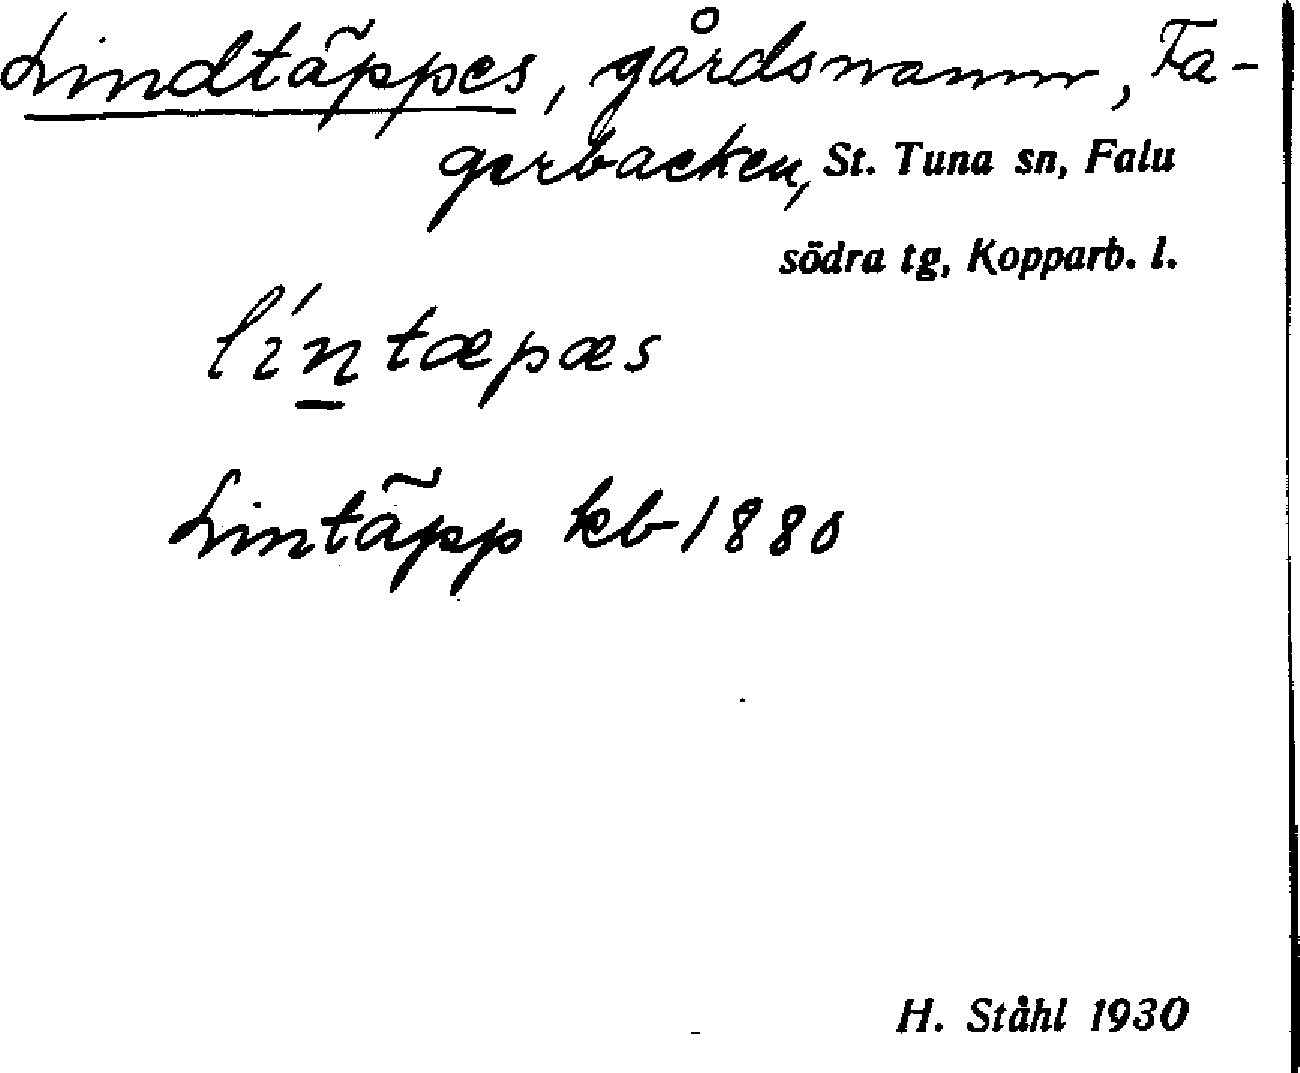 Lindtäppes, gårdsnamn, Fa-
gerbacken, St. Tuna sn, Falu
södra tg, Kopparb. l.
líntæpæs
Lintäpp kb 1880
H. Ståhl 1930